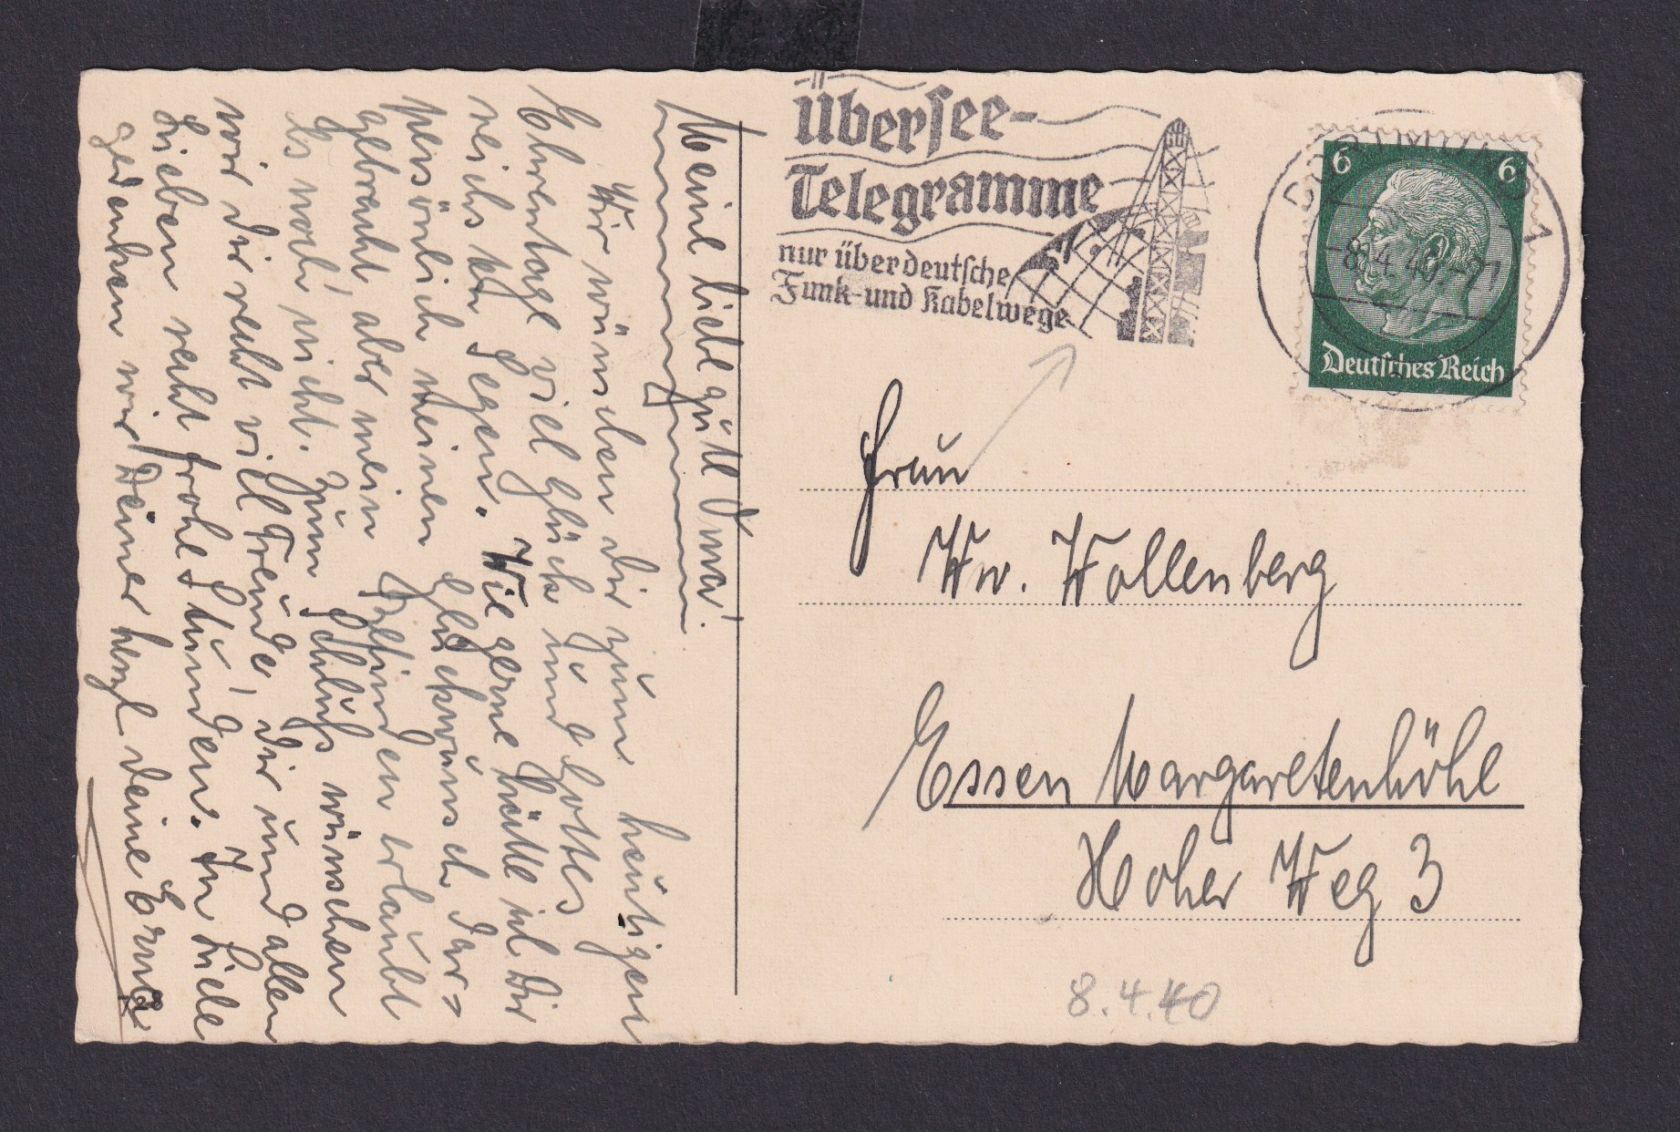 Meine liebe gute Oma!
Wir wünschen dir zum heutigen
Ehrentage viel Glück und Gottes
reichsten Segen. Wie gerne hätte ich Dir
persönlich meinen Glückwunsch dar=
gebracht aber mein Befinden erlaubt
es noch nicht. Zum Schluß wünschen
wir dir recht viel Freude, dir und allen
Lieben recht frohe Stunden. In Liebe
gedenken wir Deiner herzl deine Erna
Übersee-
Telegramme
nur über deutsche
Funk- und Kabelwege
6 6
Deutsches Reich
DORTMUND
-8.4.40.-21
Frau
Ww. Wollenberg
Essen Margaretenhöhe
Hoher Weg 3
8.4.40